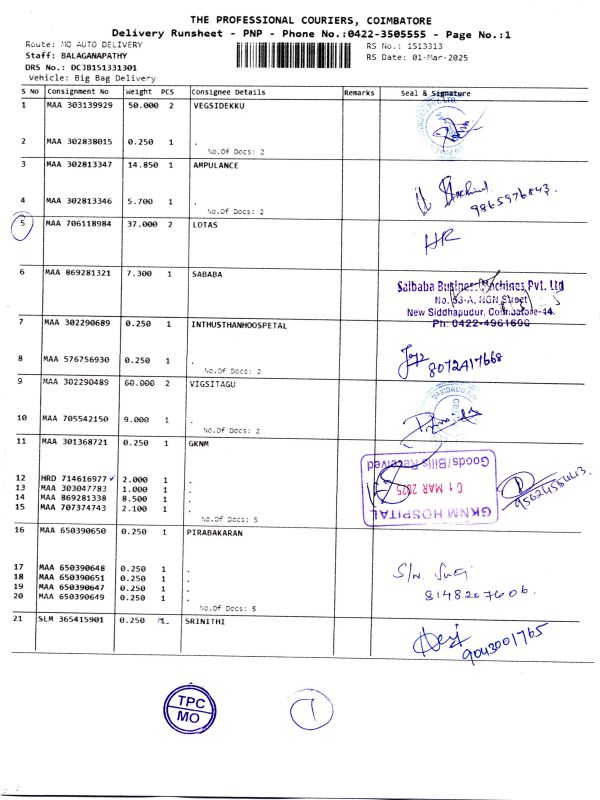 THE PROFESSIONAL COURIERS, COIMBATORE
Delivery Runsheet - PNP - Phone No.:0422-3505555 - Page No.:1
Route: MO AUTO DELIVERY RS No.: 1513313
Staff: BALAGANAPATHY RS Date: 01-Mar-2025
DRS No.: DCJB151331301
Vehicle: Big Bag Delivery
S No Consignment No Weight PCS Consignee Details Remarks Seal & Signature
1 MAA 303139929 50.000 2 VEGSIDEKKU
2 MAA 302838015 0.250 1 .
No.Of Docs: 2
3 MAA 302813347 14.850 1 AMPULANCE
4 MAA 302813346 5.700 1 .
No.Of Docs: 2
9865976843.
5 MAA 706118984 37.000 2 LOTAS
HR
6 MAA 869281321 7.300 1 SABABA
Saibaba Business Machines Pvt. Ltd
No. 53-A, NGN Street
New Siddhapudur, Coimbatore-44.
Ph: 0422-4961600
7 MAA 302290689 0.250 1 INTHUSTHANHOOSPETAL
8 MAA 576756930 0.250 1 .
No.Of Docs: 2
8072417668
9 MAA 302290489 60.000 2 VIGSITAGU
10 MAA 705542150 9.000 1 .
No.Of Docs: 2
11 MAA 301368721 0.250 1 GKNM
12 HRD 714616977 2.000 1 .
13 MAA 303047783 1.000 1 .
14 MAA 869281338 8.500 1 .
15 MAA 707374743 2.100 1 .
No.Of Docs: 5
GKNM HOSPITAL
01 MAR 2025
Goods/Bills Received
16 MAA 650390650 0.250 1 PIRABAKARAN
17 MAA 650390648 0.250 1 .
18 MAA 650390651 0.250 1 .
19 MAA 650390647 0.250 1 .
20 MAA 650390649 0.250 1 .
No.Of Docs: 5
8148207606.
21 SLM 365415901 0.250 1 SRINITHI
9043001765
TPC
MO
1